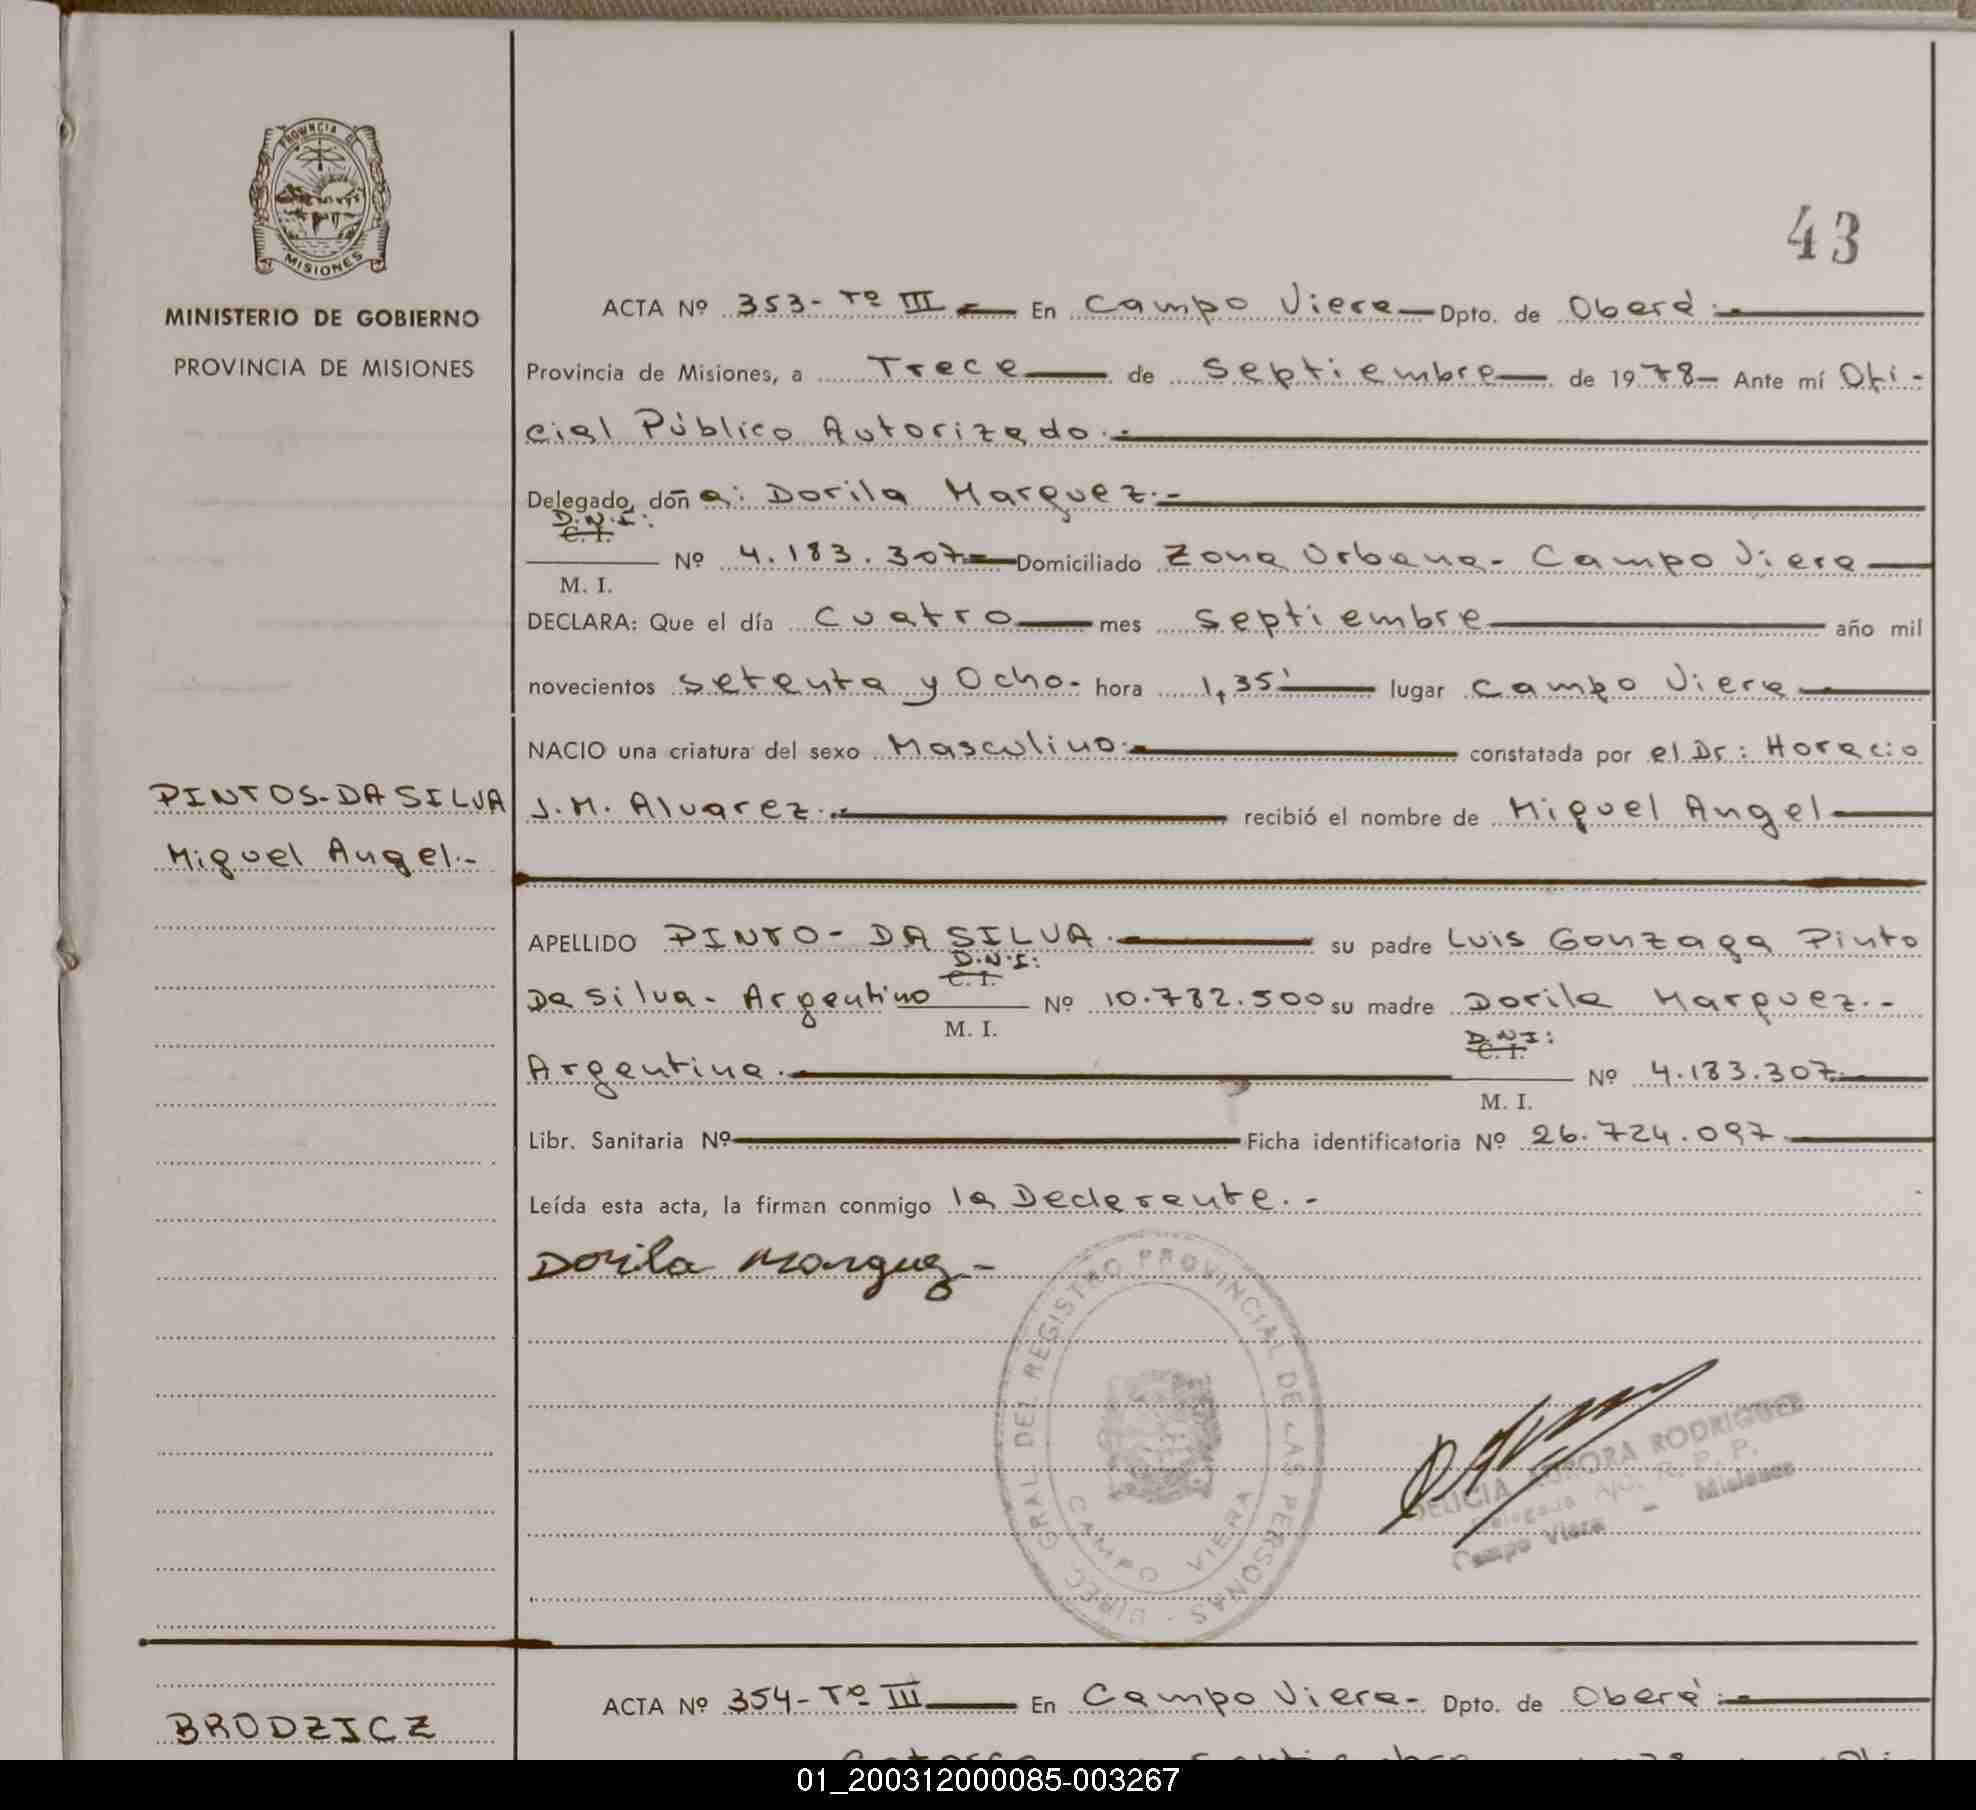 PROVINCIA DE
MISIONES
MINISTERIO DE GOBIERNO
PROVINCIA DE MISIONES
43
ACTA Nº 353- Tº III En Campo Viera Dpto. de Oberá.-
Provincia de Misiones, a Trece de Septiembre de 1978- Ante mí Ofi-
cial Público Autorizado.-
Delegado, don a: Dorila Marquez.-
D.N.I:
C. I.
Nº 4.183.307- Domiciliado Zona Urbana- Campo Viera
M. I.
DECLARA: Que el día Cuatro mes Septiembre año mil
novecientos Setenta y Ocho- hora 1,35' lugar Campo Viera
NACIO una criatura del sexo Masculino.- constatada por el Dr: Horacio
PINTOS-DA SILVA
J.M. Alvarez.- recibió el nombre de Miguel Angel
Miguel Angel.-
APELLIDO PINTO- DA SILVA.- su padre Luis Gonzaga Pinto
D.N.I:
C. I.
Da Silva- Argentino Nº 10.782.500 su madre Dorila Marquez.-
M. I.
D.N.I:
C. I.
Argentina.- Nº 4.183.307-
M. I.
Libr. Sanitaria Nº Ficha identificatoria Nº 26.724.097-
Leída esta acta, la firman conmigo la Declarante.-
Dorila Marquez-
DIREC. GRAL. DEL REGISTRO PROVINCIAL DE LAS PERSONAS -
CAMPO VIERA
DELICIA AURORA RODRIGUEZ
Delegada A/C. R. P. P.
Campo Viera - Misiones
ACTA Nº 354- Tº III En Campo Viera- Dpto. de Oberá.-
BRODZICZ
01_200312000085-003267